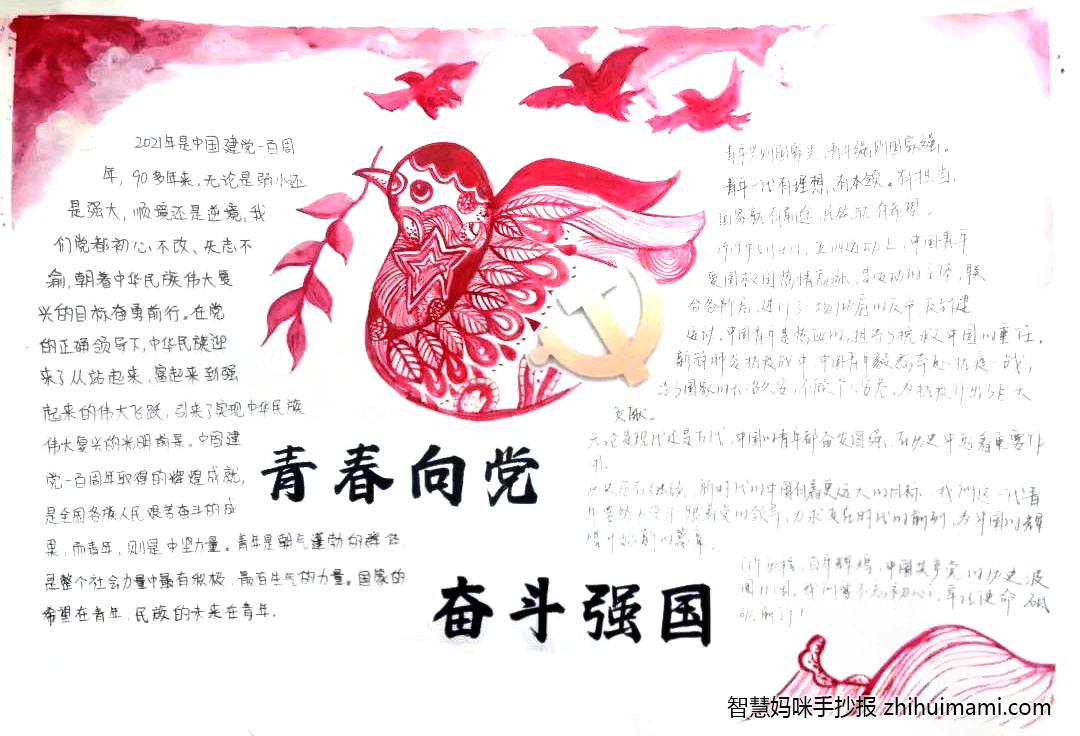 2021年是中国建党一百周
年，90多年来，无论是弱小还
是强大，顺境还是逆境，我
们党都初心不改、矢志不
渝，朝着中华民族伟大复
兴的目标奋勇前行。在党
的正确领导下，中华民族迎
来了从站起来、富起来到强
起来的伟大飞跃，引来了实现中华民族
伟大复兴的光明前景。中国建
党一百周年取得的辉煌成就，
是全国各族人民艰苦奋斗的成
果，而青年，则是中坚力量。青年是朝气蓬勃的群体，
是整个社会力量中最有积极、最有生气的力量。国家的
希望在青年，民族的未来在青年。
青春向党
奋斗强国
青年兴则国家兴，青年强则国家强。
青年一代有理想、有本领、有担当，
国家就有前途，民族就有希望。
1919年5月4日，五四运动上，中国青年
爱国救国热情高涨，是运动的主体，联
合各阶层，进行了一场彻底的反帝反封建
运动。中国青年是热血的，担当了拯救中国的重任。
贡献。
无论是现代还是古代，中国的青年都奋发图强，在历史中起着重要作
用。
历史还在继续，新时代的中国有着更远大的目标，我们这一代青
百年历程，百年辉煌，中国共产党的历史波
澜壮阔，我们要不忘初心，牢记使命，砥
砺前行！
智慧妈咪手抄报 zhihuimami.com